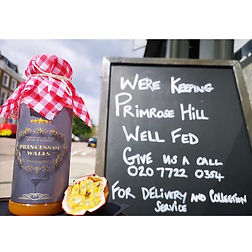 PRINCESS OF
WALES
WERE KEEPING
PRIMROSE HILL
WELL FED
GIVE US A CALL
020 7722 0354
FOR DELIVERY AND COLLECTION
SERVICE